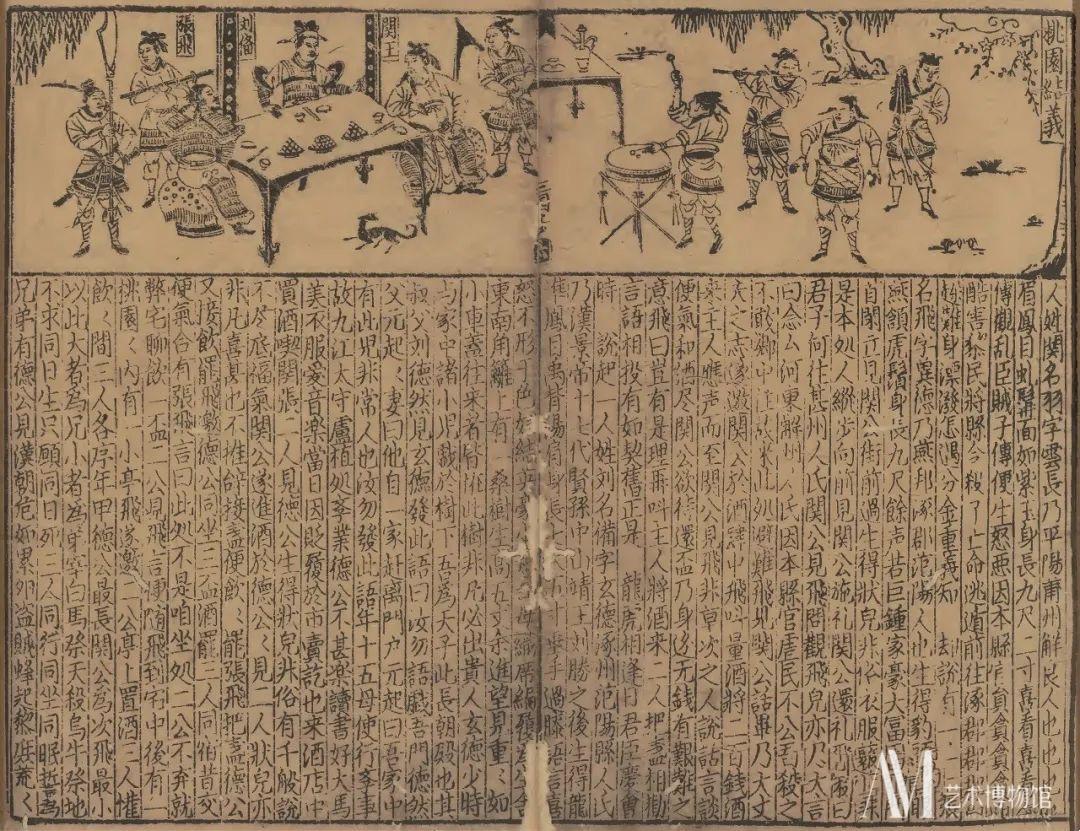 桃園結義
関王
刘俻
張飛
人姓関名羽字雲長乃平陽蒲州解良人也
眉鳳目虬髯面如紫玉身長九尺二寸喜看春
傳觀乱臣賊子傳便生怒恶因本縣官員貪
酷害黎民将縣令殺了亡命逃遁前往涿郡
名飛字翼德乃燕邦涿郡范陽人也生得豹
燕頷虎鬚身長九尺餘声若巨鍾家豪大富
自閑立見関公街前過生得狀皃非俗衣服
是本処人縱步向前見関公施礼関公還礼飛問曰
君子何往甚州人氏関公見飛問觀飛皃亦非
曰念某河東解州人氏因本縣官虐民不公吾殺之
不敢鄉中住故来此処避難飛見関公話畢乃大丈
夫之志遂邀関公於酒肆中飛叫量酒将二百錢酒
来主人應声而至関公見飛非草次之人說話言談
便氣和酒尽関公欲待還盃乃身邊无錢有艱難之
意飛曰豈有是理再叫主人将酒来二人把盞相勸
言語相投有如契舊正是龍虎相逢日君臣慶會
時說起一人姓刘名備字玄德涿州范陽縣人氏
乃漢景帝十七代賢孫中山靖王刘勝之後生得龍
凖鳳目禹背湯肩身長七尺五寸垂手過膝語言喜
怒不形于色好結英豪少孤與母織席編履為生舎
東南角籬上有一桑樹生高五丈餘進望見重重如
小車盖往来者皆恠此樹非凡必出貴人玄德少時
与家中諸小児戲於樹下吾為天子此長朝殿也其
叔父刘德然見玄德發此語曰汝勿語戲吾門德然
父元起々妻曰他自一家赶离門户元起曰吾家中
有此児非常人也汝勿發此語年十五母使行孝事
故九江太守盧植処孝業德公不甚樂讀書好犬馬
美衣服愛音樂當日因販履於市賣訖也来酒店中
買酒喫関張二人見德公生得狀皃非俗有千般說
不尽底福氣関公遂進酒於德公々見二人狀皃亦
非凡喜甚也不推辞接盞便飲々罷張飛把盞德公
又接飲罷飛邀德公同坐三盃酒罷三人同宿昔交
便氣合有張飛言曰此処不是咱坐処二公不弃就
弊宅聊飲一盃二公見飛言便隨飛到宅中後有一
桃園々内有一小亭飛遂邀二公亭上置酒三人懽
飲々間三人各序年甲德公最長関公為次飛最小
以此大者為兄小者為弟宰白馬祭天殺烏牛祭地
不求同日生只願同日死三人同行同坐同眠誓為
兄弟有德公見漢朝危如累卵盗賊蜂起黎庶荒々
艺术博物馆